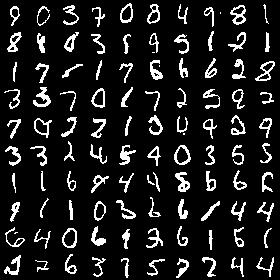 9 0 3 7 0 8 4 9 8 1
8 1 0 3 1 9 5 1 2 1
1 7 1 1 7 6 6 6 2 8
3 3 7 0 1 7 2 5 9 2
7 0 2 7 1 0 4 9 2 9
3 3 2 4 5 4 0 3 6 5
1 1 6 9 4 4 8 6 6 6
9 1 1 0 3 2 6 1 4 4
6 4 0 6 9 2 6 1 5 1
2 7 6 3 7 5 7 2 4 4